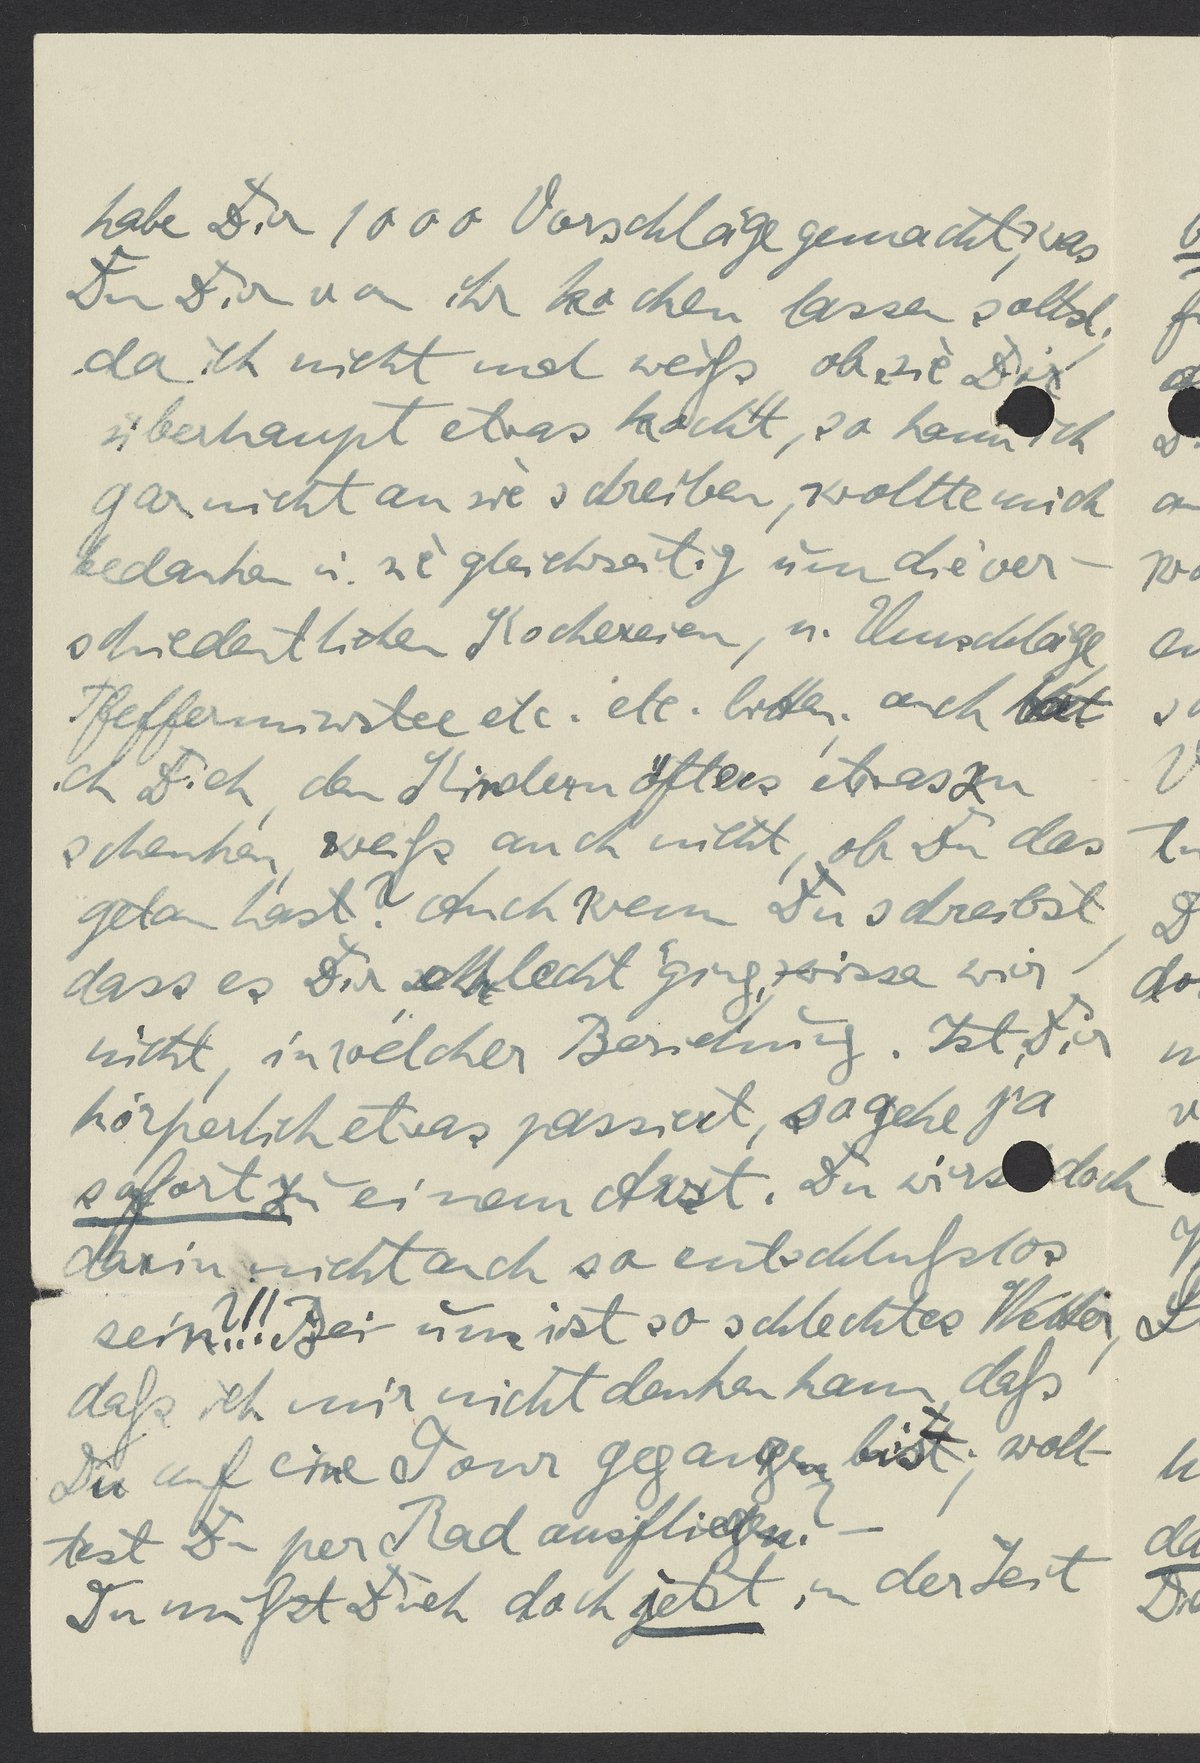 habe Dir 1000 Vorschläge gemacht, was
Du Dir von ihr kochen lassen sollst,
da ich nicht mal weiß, ob sie Dir
überhaupt etwas kocht, so kann ich
gar nicht an sie schreiben, wollte mich
bedanken u. sie gleichzeitig um die ver-
schiedentlichen Kochereien, u. Umschläge,
Pfefferminztee etc. etc. bitten, auch bat
ich Dich, den Kindern öfters etwas zu
schenken, weiß auch nicht, ob Du das
getan hast? Auch wenn Du schreibst,
dass es Dir schlecht ging, wissen wir
nicht, in welcher Beziehung. Ist Dir
körperlich etwas passiert, so gehe ja
sofort zu einem Arzt. Du wirst doch
darin nicht auch so entschlußlos
sein?!!! Bei uns ist so schlechtes Wetter,
daß ich mir nicht denken kann, daß
Du auf eine Tour gegangen bist, woll-
test Du per Rad ausfliegen? –
Du mußt Dich doch jetzt, in der Zeit